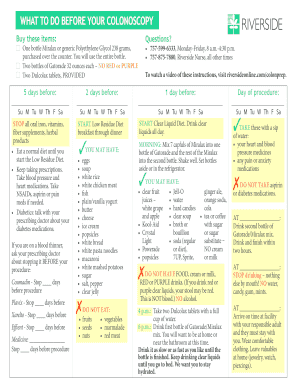 WHAT TO DO BEFORE YOUR COLONOSCOPY
RIVERSIDE
Buy these items:
One bottle Miralax or generic Polyethylene Glycol 238 grams,
purchased over the counter. You will use the entire bottle.
Two bottles of Gatorade 32 ounces each – NO RED or PURPLE
Two Dulcolax tablets, PROVIDED
Questions?
• 757-599-6333, Monday-Friday, 8 a.m. - 4:30 p.m.
• 757-875-7880, Riverside Nurse, all other times
To watch a video of these instructions, visit riversideonline.com/colonprep.
5 days before:
Su M Tu W Th F Sa
STOP all oral iron, vitamins,
fiber supplements, herbal
products
• Eat a normal diet until you
start the Low Residue Diet.
• Keep taking prescriptions.
Take blood pressure and
heart medications. Take
NSAIDs, aspirin or pain
meds if needed.
• Diabetics: talk with your
prescribing doctor about your
diabetes medications.
If you are on a blood thinner,
ask your prescribing doctor
about stopping it BEFORE your
procedure:
Coumadin - Stop ___ days
before procedure
Plavix - Stop ___ days before
Xarelto - Stop ___ days before
Effient - Stop ___ days before
Medicine
Stop ___ days before procedure
3 days before:
Su M Tu W Th F Sa
START Low Residue Diet
breakfast through dinner
YOU MAY HAVE:
• eggs
• soup
• white rice
• white chicken meat
• fish
• plain/vanilla yogurt
• butter
• cheese
• ice cream
• popsicles
• white bread
• white pasta noodles
• macaroni
• white mashed potatoes
• sugar
• salt, pepper
• clear jelly
DO NOT EAT:
• fruits
• seeds
• nuts
• vegetables
• oatmeal
• red meat
1 day before:
Su M Tu W Th F Sa
START Clear Liquid Diet. Drink clear
liquids all day.
MORNING: Mix 7 capfuls of Miralax into one
bottle of Gatorade and the rest of the Miralax
into the second bottle. Shake well. Set bottles
aside or in the refrigerator.
YOU MAY HAVE:
• clear fruit
juices –
white grape
and apple
• Kool-Aid
• Crystal
Light
• Powerade
• popsicles
• Jell-O
• water
• hard candies
• clear soup
• broth or
bouillon
• soda (regular
or diet),
7UP, Sprite,
ginger ale,
orange soda,
cola
• tea or coffee
with sugar
or sugar
substitute –
NO cream
or milk
DO NOT HAVE FOOD, cream or milk,
RED or PURPLE drinks. (If you drink red or
purple clear liquids, your stool may be red.
This is NOT blood.) NO alcohol.
4 p.m.: Take two Dulcolax tablets with a full
cup of water.
6 p.m.: Drink first bottle of Gatorade/Miralax
mix. You will want to be at home or
near the bathroom at this time.
Drink it as slow or as fast as you like until the
bottle is finished. Keep drinking clear liquids
until you go to bed. We want you to stay
hydrated.
Day of procedure:
Su M Tu W Th F Sa
TAKE these with a sip
of water:
• your heart and blood
pressure medicines
• any pain or anxiety
medications
DO NOT TAKE aspirin
or diabetes medications.
AT
Drink second bottle of
Gatorade/Miralax mix.
Drink and finish within
two hours.
AT
STOP drinking – nothing
else by mouth! NO water,
candy, gum, mints.
AT
Arrive on time at facility
with your responsible adult
and they must stay with
you. Wear comfortable
clothing. Leave valuables
at home (jewelry, watch,
piercings).